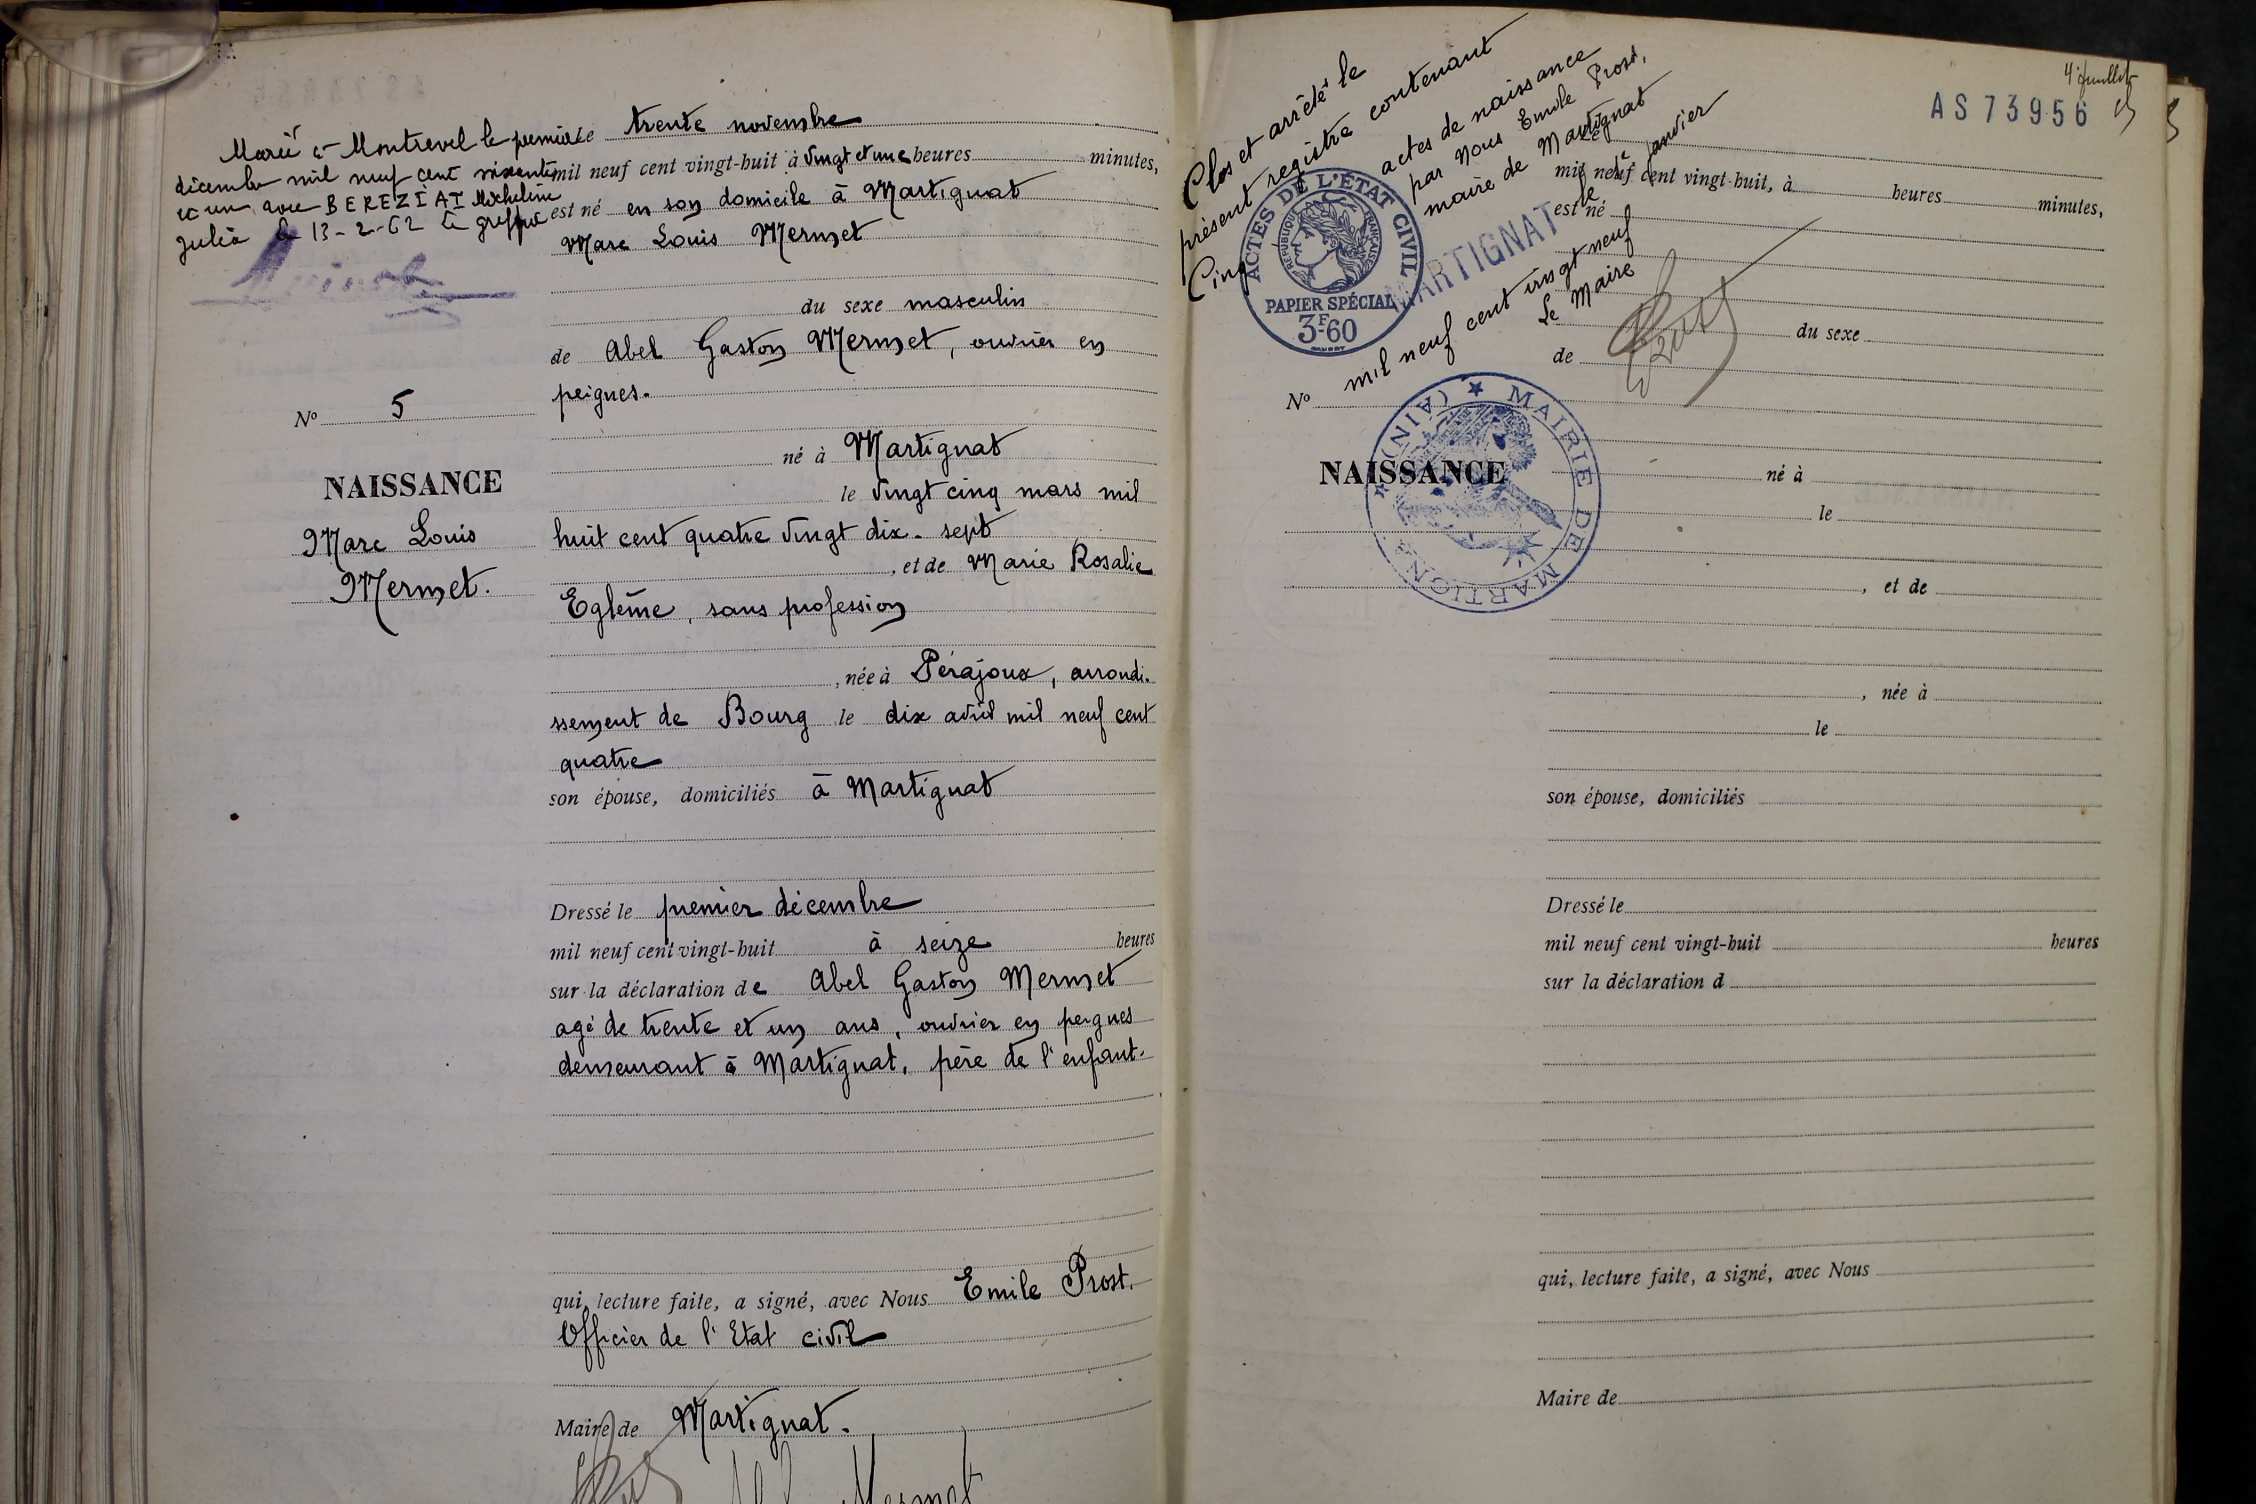 Marié à Montrevel le premier
décembre mil neuf cent soixante
et un avec BEREZIAT Micheline
Julia le 13-2-62 le greffier
Le trente novembre
mil neuf cent vingt-huit à vingt et une heures minutes,
est né en son domicile à Martignat
Marc Louis Mermet
du sexe masculin
de Abel Gaston Mermet, ouvrier en
peignes.
né à Martignat
le vingt cinq mars mil
huit cent quatre vingt dix-sept
, et de Marie Rosalie
Egléme, sans profession
, née à Pérajoux, arrondi-
ssement de Bourg le dix avril mil neuf cent
quatre
son épouse, domiciliés à Martignat
No 5
NAISSANCE
Marc Louis
Mermet.
Dressé le premier décembre
mil neuf cent vingt-huit à seize heures
sur la déclaration de Abel Gaston Mermet
agé de trente et un ans, ouvrier en peignes
demeurant à Martignat, père de l'enfant.
qui, lecture faite, a signé, avec Nous Emile Prost.
Officier de l'Etat civil
Maire de Martignat.
Abel Mermet
4e feuillet
AS 73956
Clos et arrêté le
présent registre contenant
Cinq actes de naissance
par nous Emile Prost,
maire de Martignat
le 1er janvier
mil neuf cent vingt neuf
Le Maire
Prost
ACTES DE L'ÉTAT CIVIL
RÉPUBLIQUE FRANÇAISE
PAPIER SPÉCIAL
3F-60
MARTIGNAT
MAIRIE DE MARTIGNAT (AIN)
Le
mil neuf cent vingt-huit, à heures minutes,
est né
du sexe
de
No
NAISSANCE
né à
le
, et de
, née à
le
son épouse, domiciliés
Dressé le
mil neuf cent vingt-huit heures
sur la déclaration d
qui, lecture faite, a signé, avec Nous
Maire de